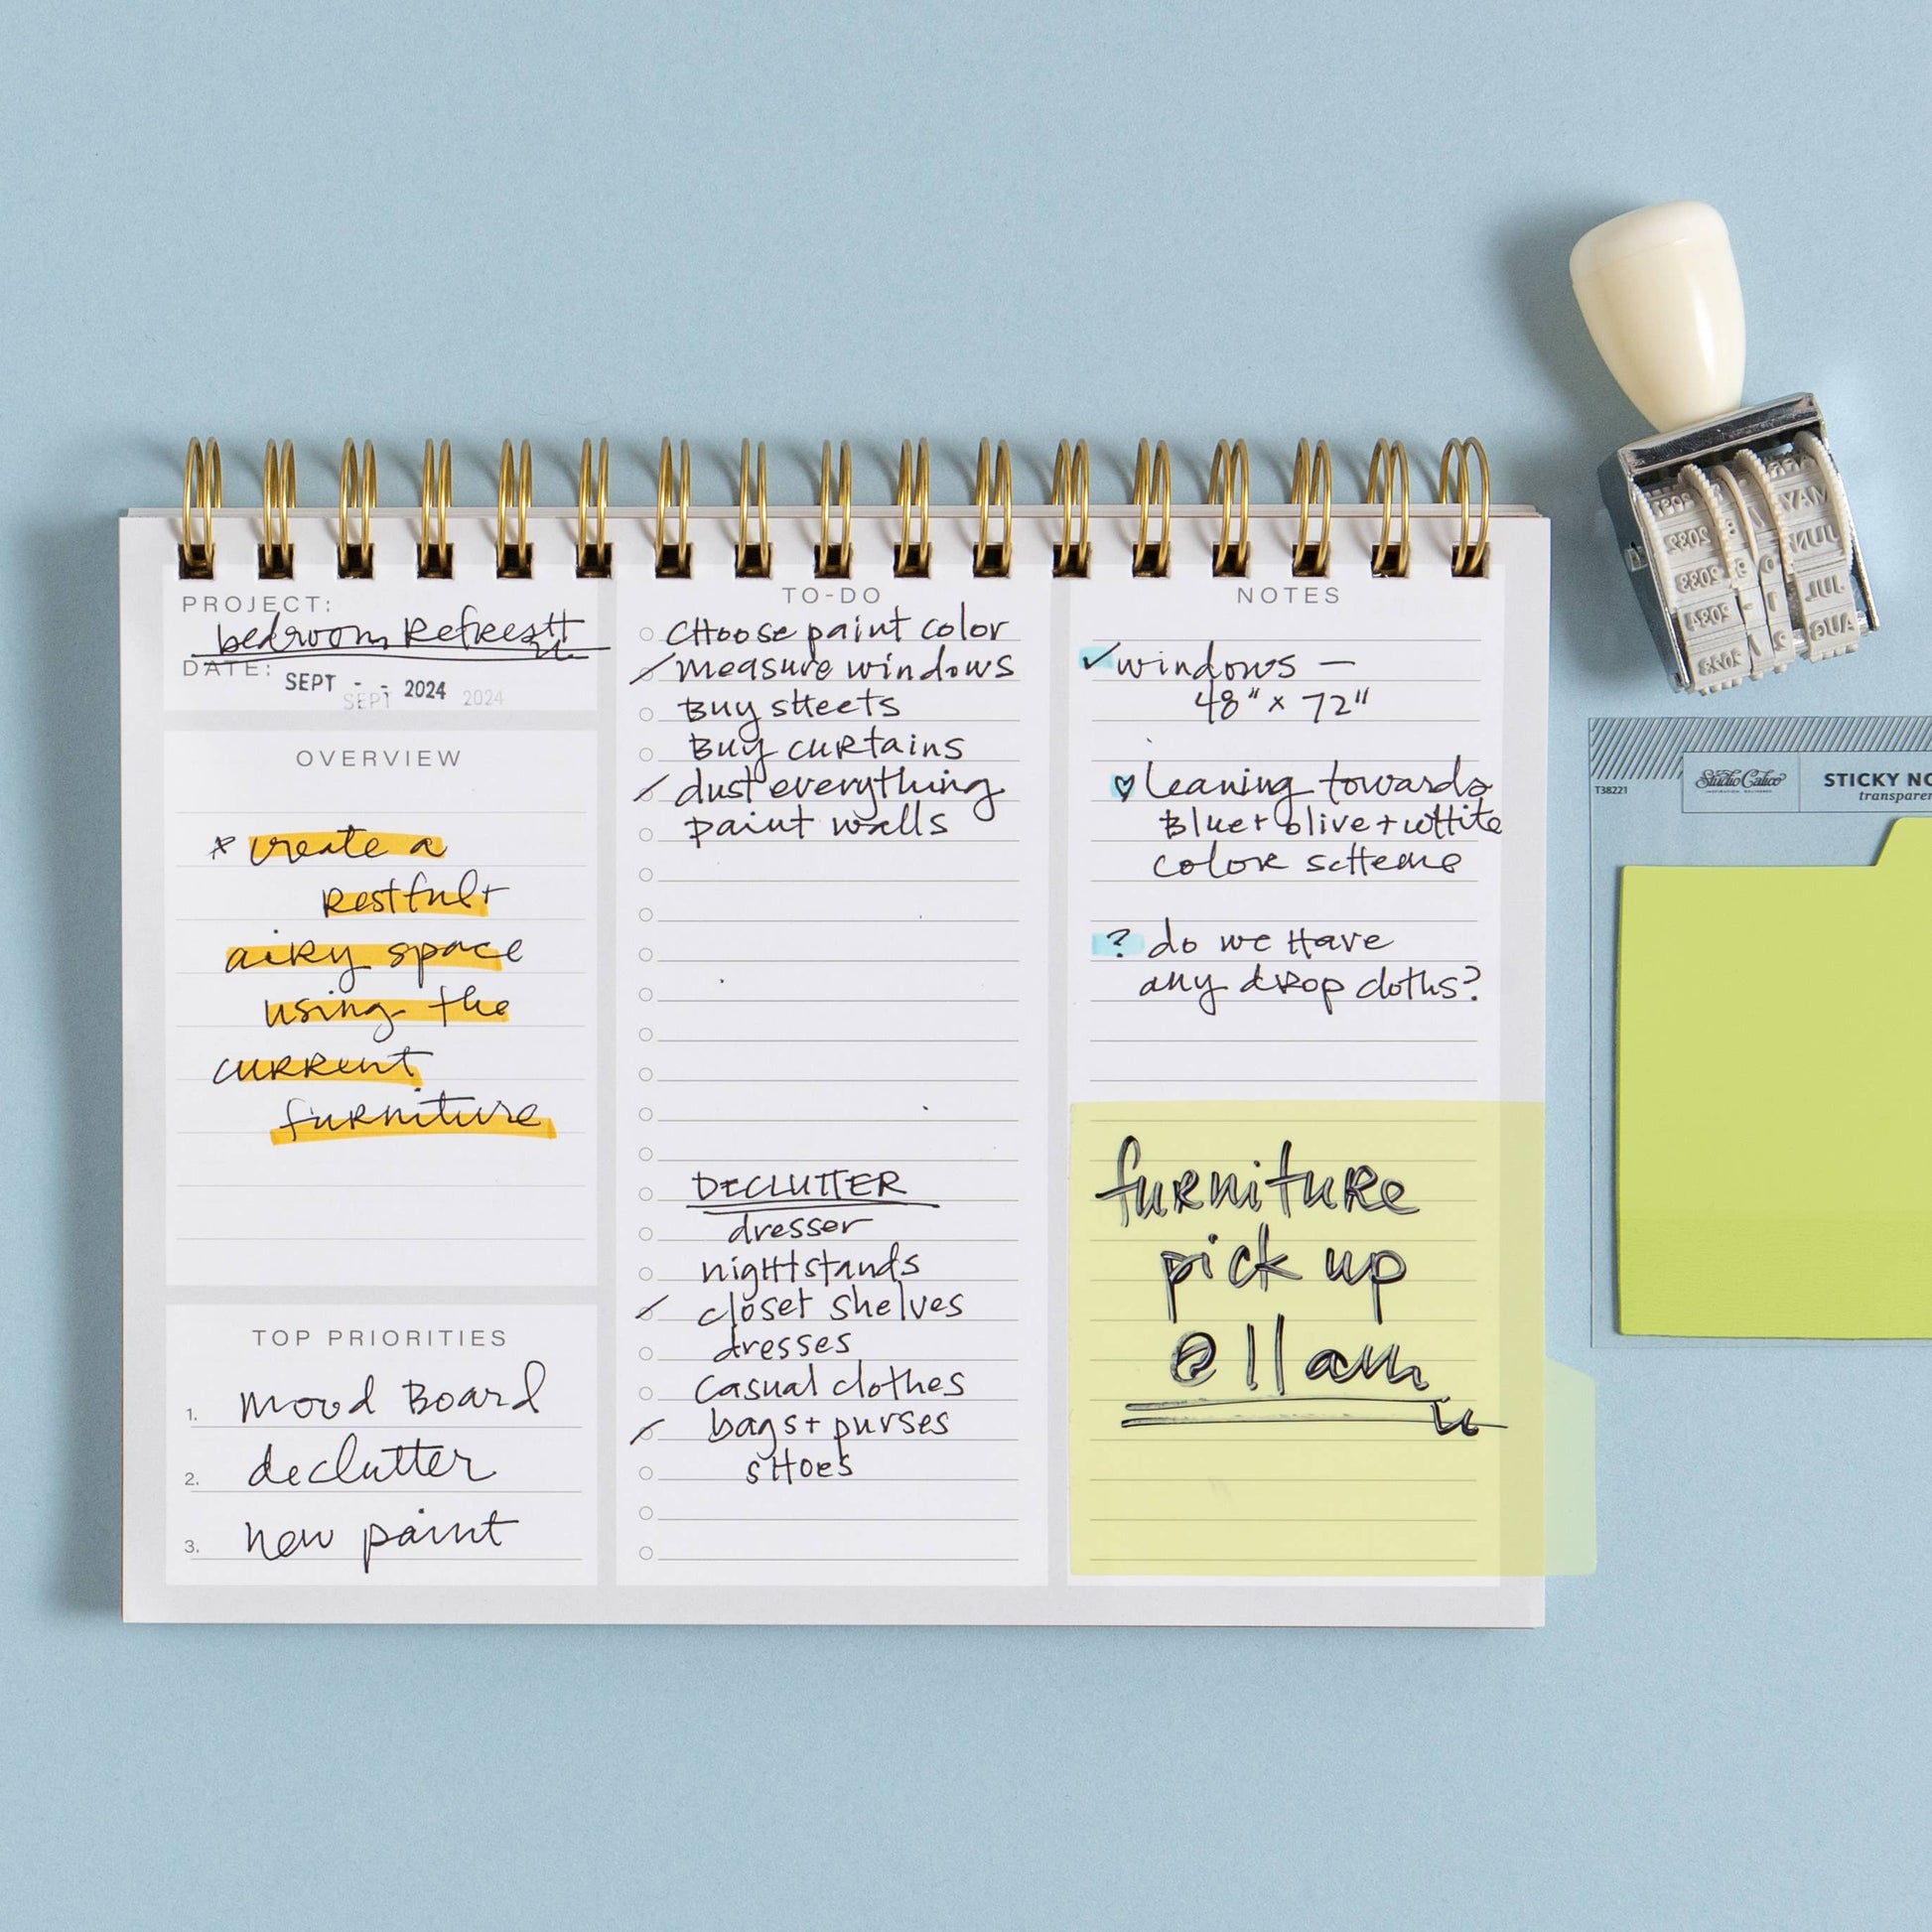 PROJECT:
bedroom Refresh
DATE: SEPT - - 2024
SEPT 2024
OVERVIEW
* create a
restful +
airy space
using the
current
furniture
TOP PRIORITIES
1. mood Board
2. declutter
3. new paint
TO-DO
Choose paint color
measure windows
Buy sheets
Buy curtains
dust everything
paint walls
DECLUTTER
dresser
nightstands
closet shelves
dresses
casual clothes
bags + purses
shoes
NOTES
✓ windows —
48" x 72"
♡ leaning towards
Blue + olive + white
color scheme
? do we have
any drop cloths?
furniture
pick up
@ 11 am
MAY
2032 JUN
2033 JUL
2034 AUG
Studio Calico
STICKY NO
transparen
T38221